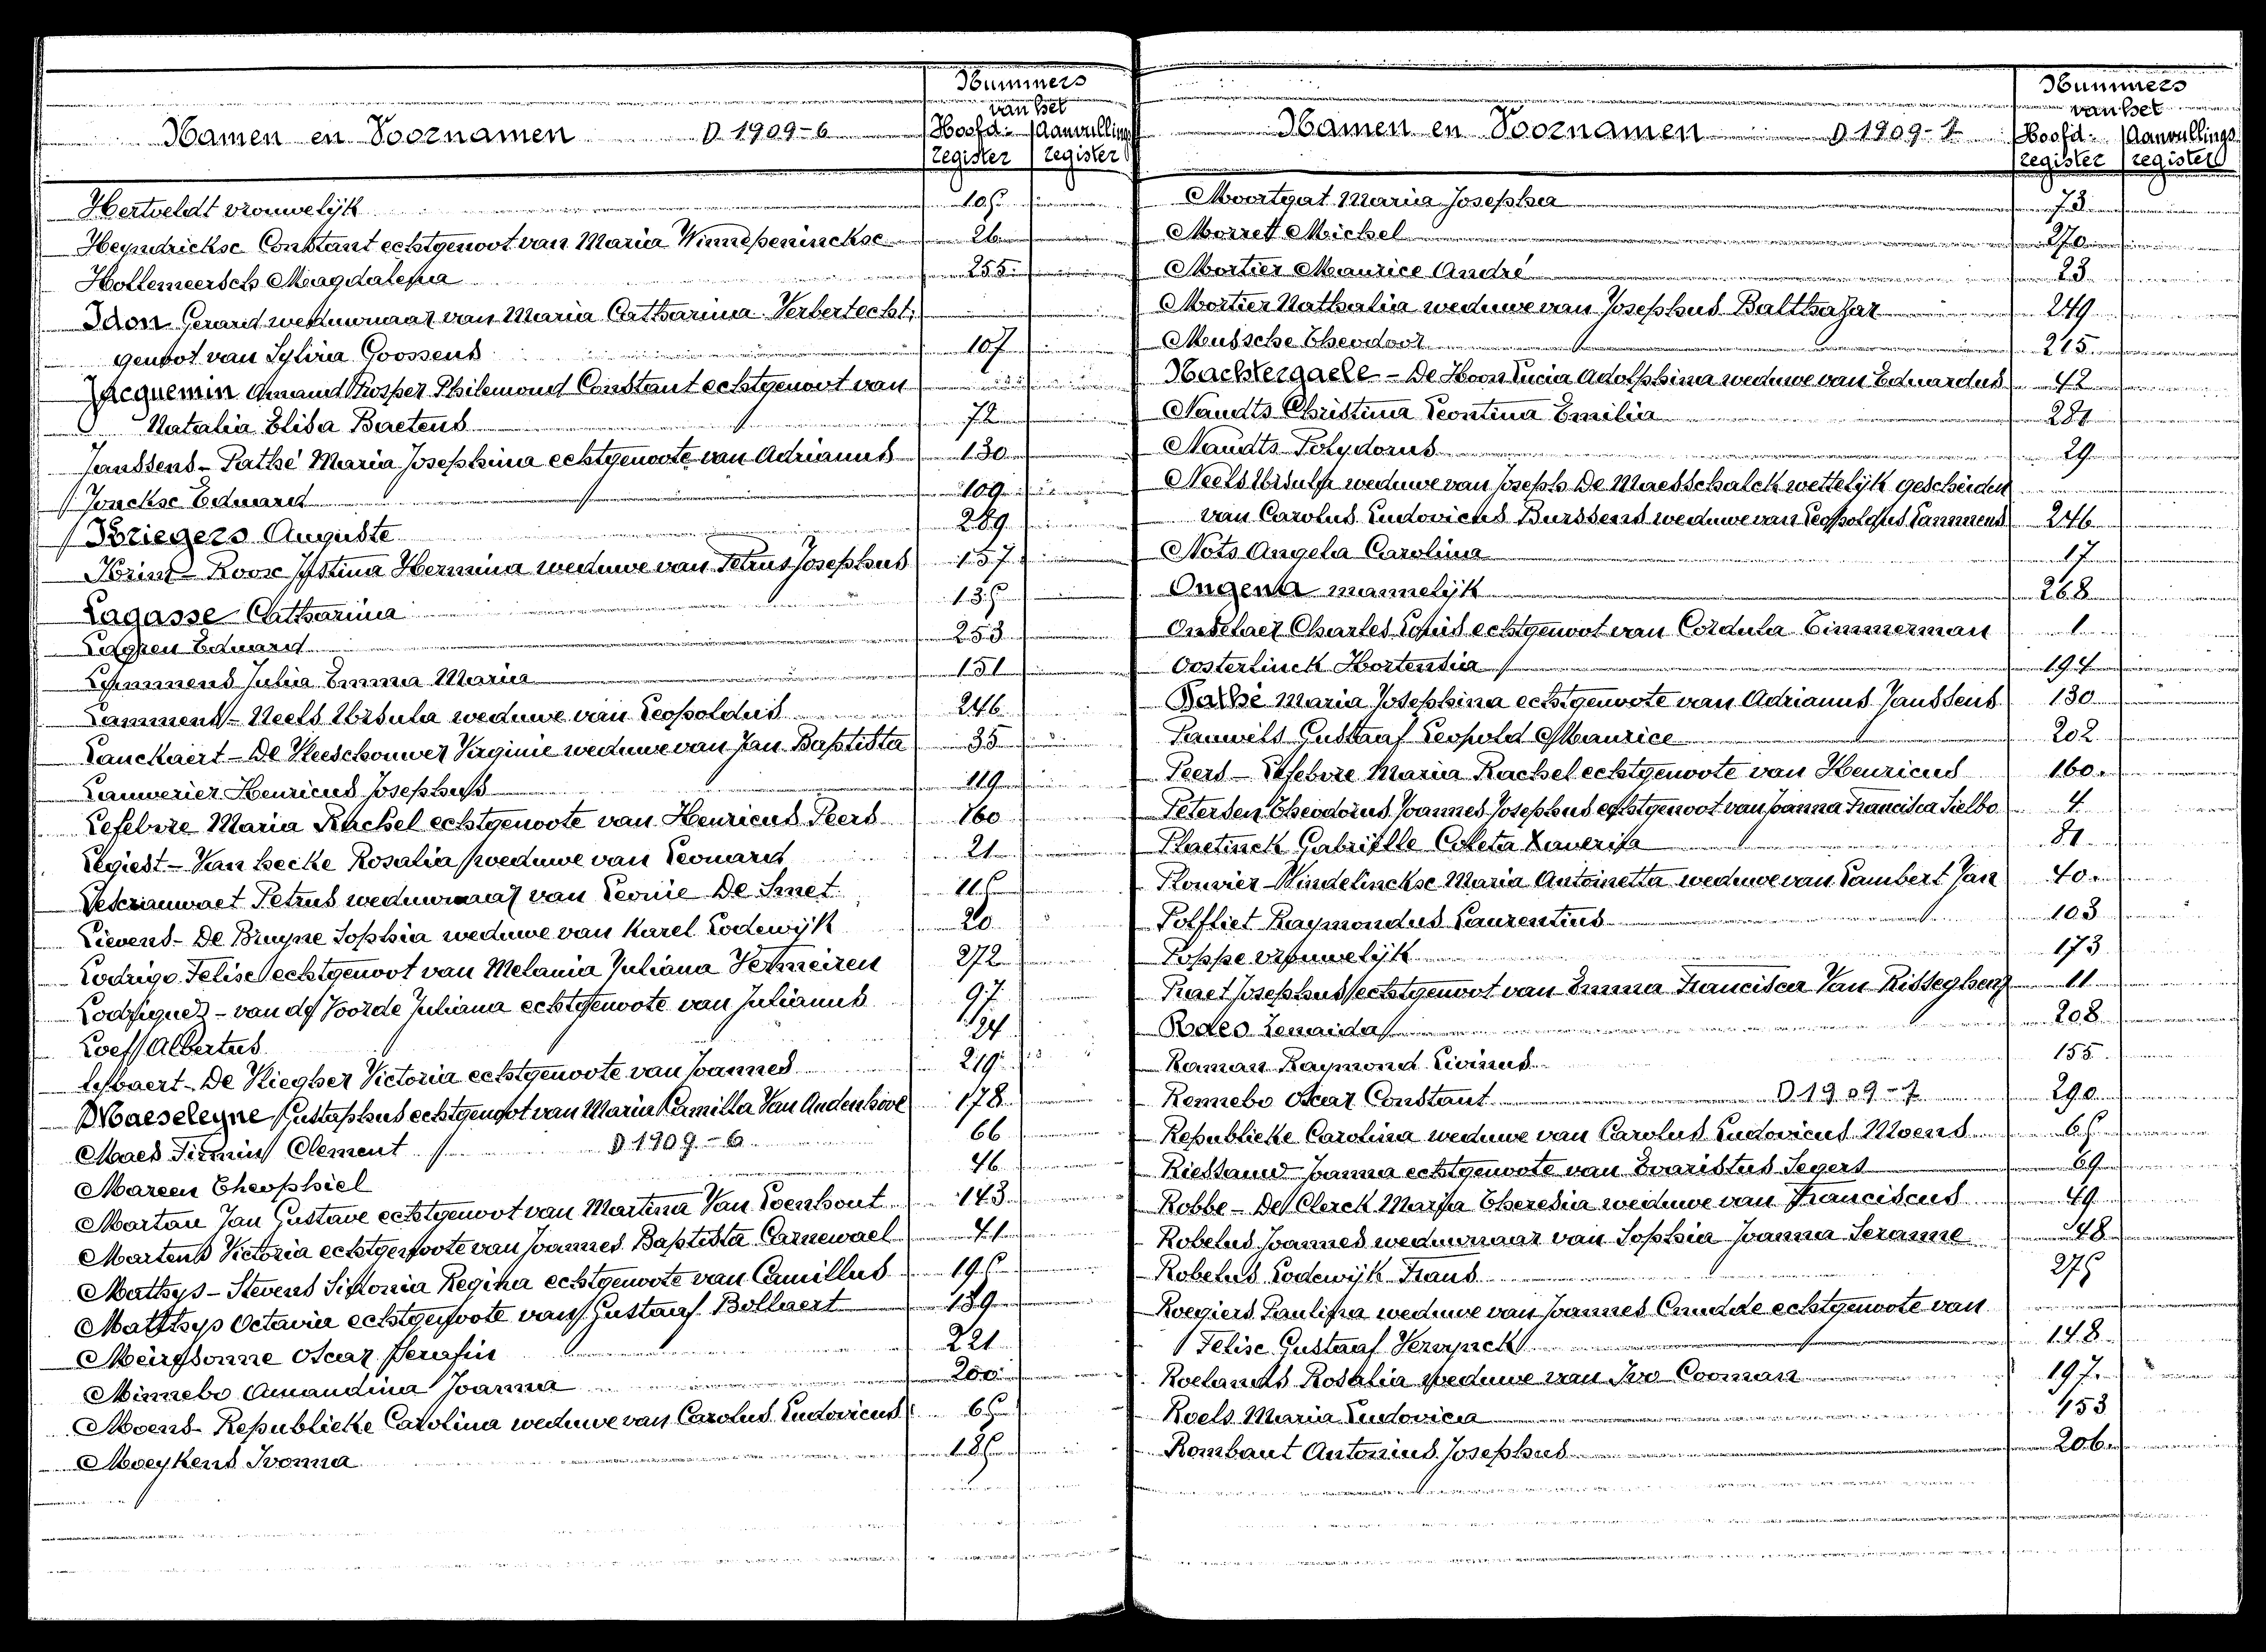 Nummers
van het
Namen en Voornamen D 1909-6 Hoofd- Aanvullings
register register
Hertveldt vrouwelijk 105
Heyndrickse Constant echtgenoot van Maria Winnepeninckse 26
Hollemeersch Magdalena 255
Idon Gerard weduwnaar van Maria Catharina Verbert echt-
genoot van Sylvia Goossens 107
Jacquemin Amand Prosper Philemond Constant echtgenoot van
Natalia Elisa Baetens 72
Janssens - Pathé Maria Josephina echtgenoote van Adrianus 130
Jonckse Eduard 109
Kriegers Auguste 289
Krins - Roose Justina Hermina weduwe van Petrus Josephus 137
Lagasse Catharina 135
Lagren Eduard 253
Lammens Julia Emma Maria 151
Lammens - Neels Ursula weduwe van Leopoldus 246
Lanckaert - De Vleeschouwer Virginie weduwe van Jan Baptista 35
Lauwerier Henricus Josephus 119
Lefebvre Maria Rachel echtgenoote van Henricus Peers 160
Legiest - Van hecke Rosalia weduwe van Leonard 21
Petrus weduwnaar van Leonie De Smet 115
Lievens - De Bruyne Sophia weduwe van Karel Lodewijk 20
Lodrigo Felise echtgenoot van Melania Juliana Vermeiren 272
Lodrigues - van de Voorde Juliana echtgenoote van Julianus 97
Loeff Albertus 94
De Vlieger Victoria echtgenoote van Joannes 219
Maeseleyne Gustaphus echtgenoot van Maria Camilla Van Audenhove 178
Maes Firmin Clement D 1909-6 66
Mareen Theophiel 46
Martan Jan Gustave echtgenoot van Martina Van Loenhout 143
Martens Victoria echtgenoote van Joannes Baptista Carnewael 41
Mathys - Stevens Sidonia Regina echtgenoote van Camillus 195
Matthys Octavia echtgenoote van Gustaaf Bollaert 189
Meirsonne Oscar Serafin 221
Minnebo Amandina Joanna 200
Moens - Republieke Carolina weduwe van Carolus Ludovicus 65
Moeykens Ivonna 185
Nummers
van het
Namen en Voornamen D 1909-7 Hoofd- Aanvullings
register register
Moortgat Maria Josepha 73
Morret Michel 270
Mortier Maurice André 23
Mortier Nathalia weduwe van Josephus Balthazar 249
Mussche Theodoor 215
Nachtergaele - De Hoon Lucia Adolphina weduwe van Eduardus 42
Naudts Christina Leontina Emilia 281
Naudts Polydorus 29
Neels Ursula weduwe van Joseph De Maesschalck wettelijk gescheiden
van Carolus Ludovicus Burssens weduwe van Leopoldus Lammens 246
Nots Angela Carolina 17
Ongena mannelijk 268
Onselaer Charles Louis echtgenoot van Cordula Timmerman 1
Oosterlinck Hortensia 194
Pathé Maria Josephina echtgenoote van Adrianus Janssens 130
Pauwels Gustaaf Leopold Maurice 202
Peers - Lefebvre Maria Rachel echtgenoote van Henricus 160
Petersen Theodorus Joannes Josephus echtgenoot van Joanna Francisca Sielbo 4
Plaetinck Gabriëlle Coleta Xaveria 81
Plouvier - Windelinckse Maria Antoinetta weduwe van Lambert Jan 40
Polfliet Raymondus Laurentius 103
Poppe vrouwelijk 173
Praet Josephus echtgenoot van Emma Francisca Van Risseghem 11
Rades Zenaida 208
Raman Raymond Livinus 155
Rennebo Oscar Constant D 1909-7 290
Republieke Carolina weduwe van Carolus Ludovicus Moens 65
Riessauw Joanna echtgenoote van Evaristus Segers 69
Robbe - De Clerck Maria Theresia weduwe van Franciscus 49
Robelus Joannes weduwnaar van Sophia Joanna Seranne 248
Robelus Lodewijk Frans 275
Roegiers Paulina weduwe van Joannes Cnudde echtgenoote van
Felise Gustaaf Vervynck 148
Roelands Rosalia weduwe van Ivo Cooman 197
Roels Maria Ludovica 153
Rombaut Antonius Josephus 206